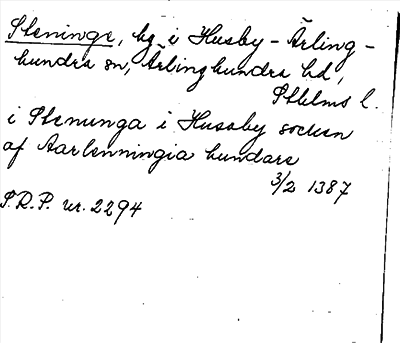 Steninge, hg i Husby-Ärling-
hundra sn, Ärlinghundra hd,
Sthlms l.
i Stenunga i Husaby socken
af Aarlenningia hundare
3/2 1387
S.R.P. nr. 2294